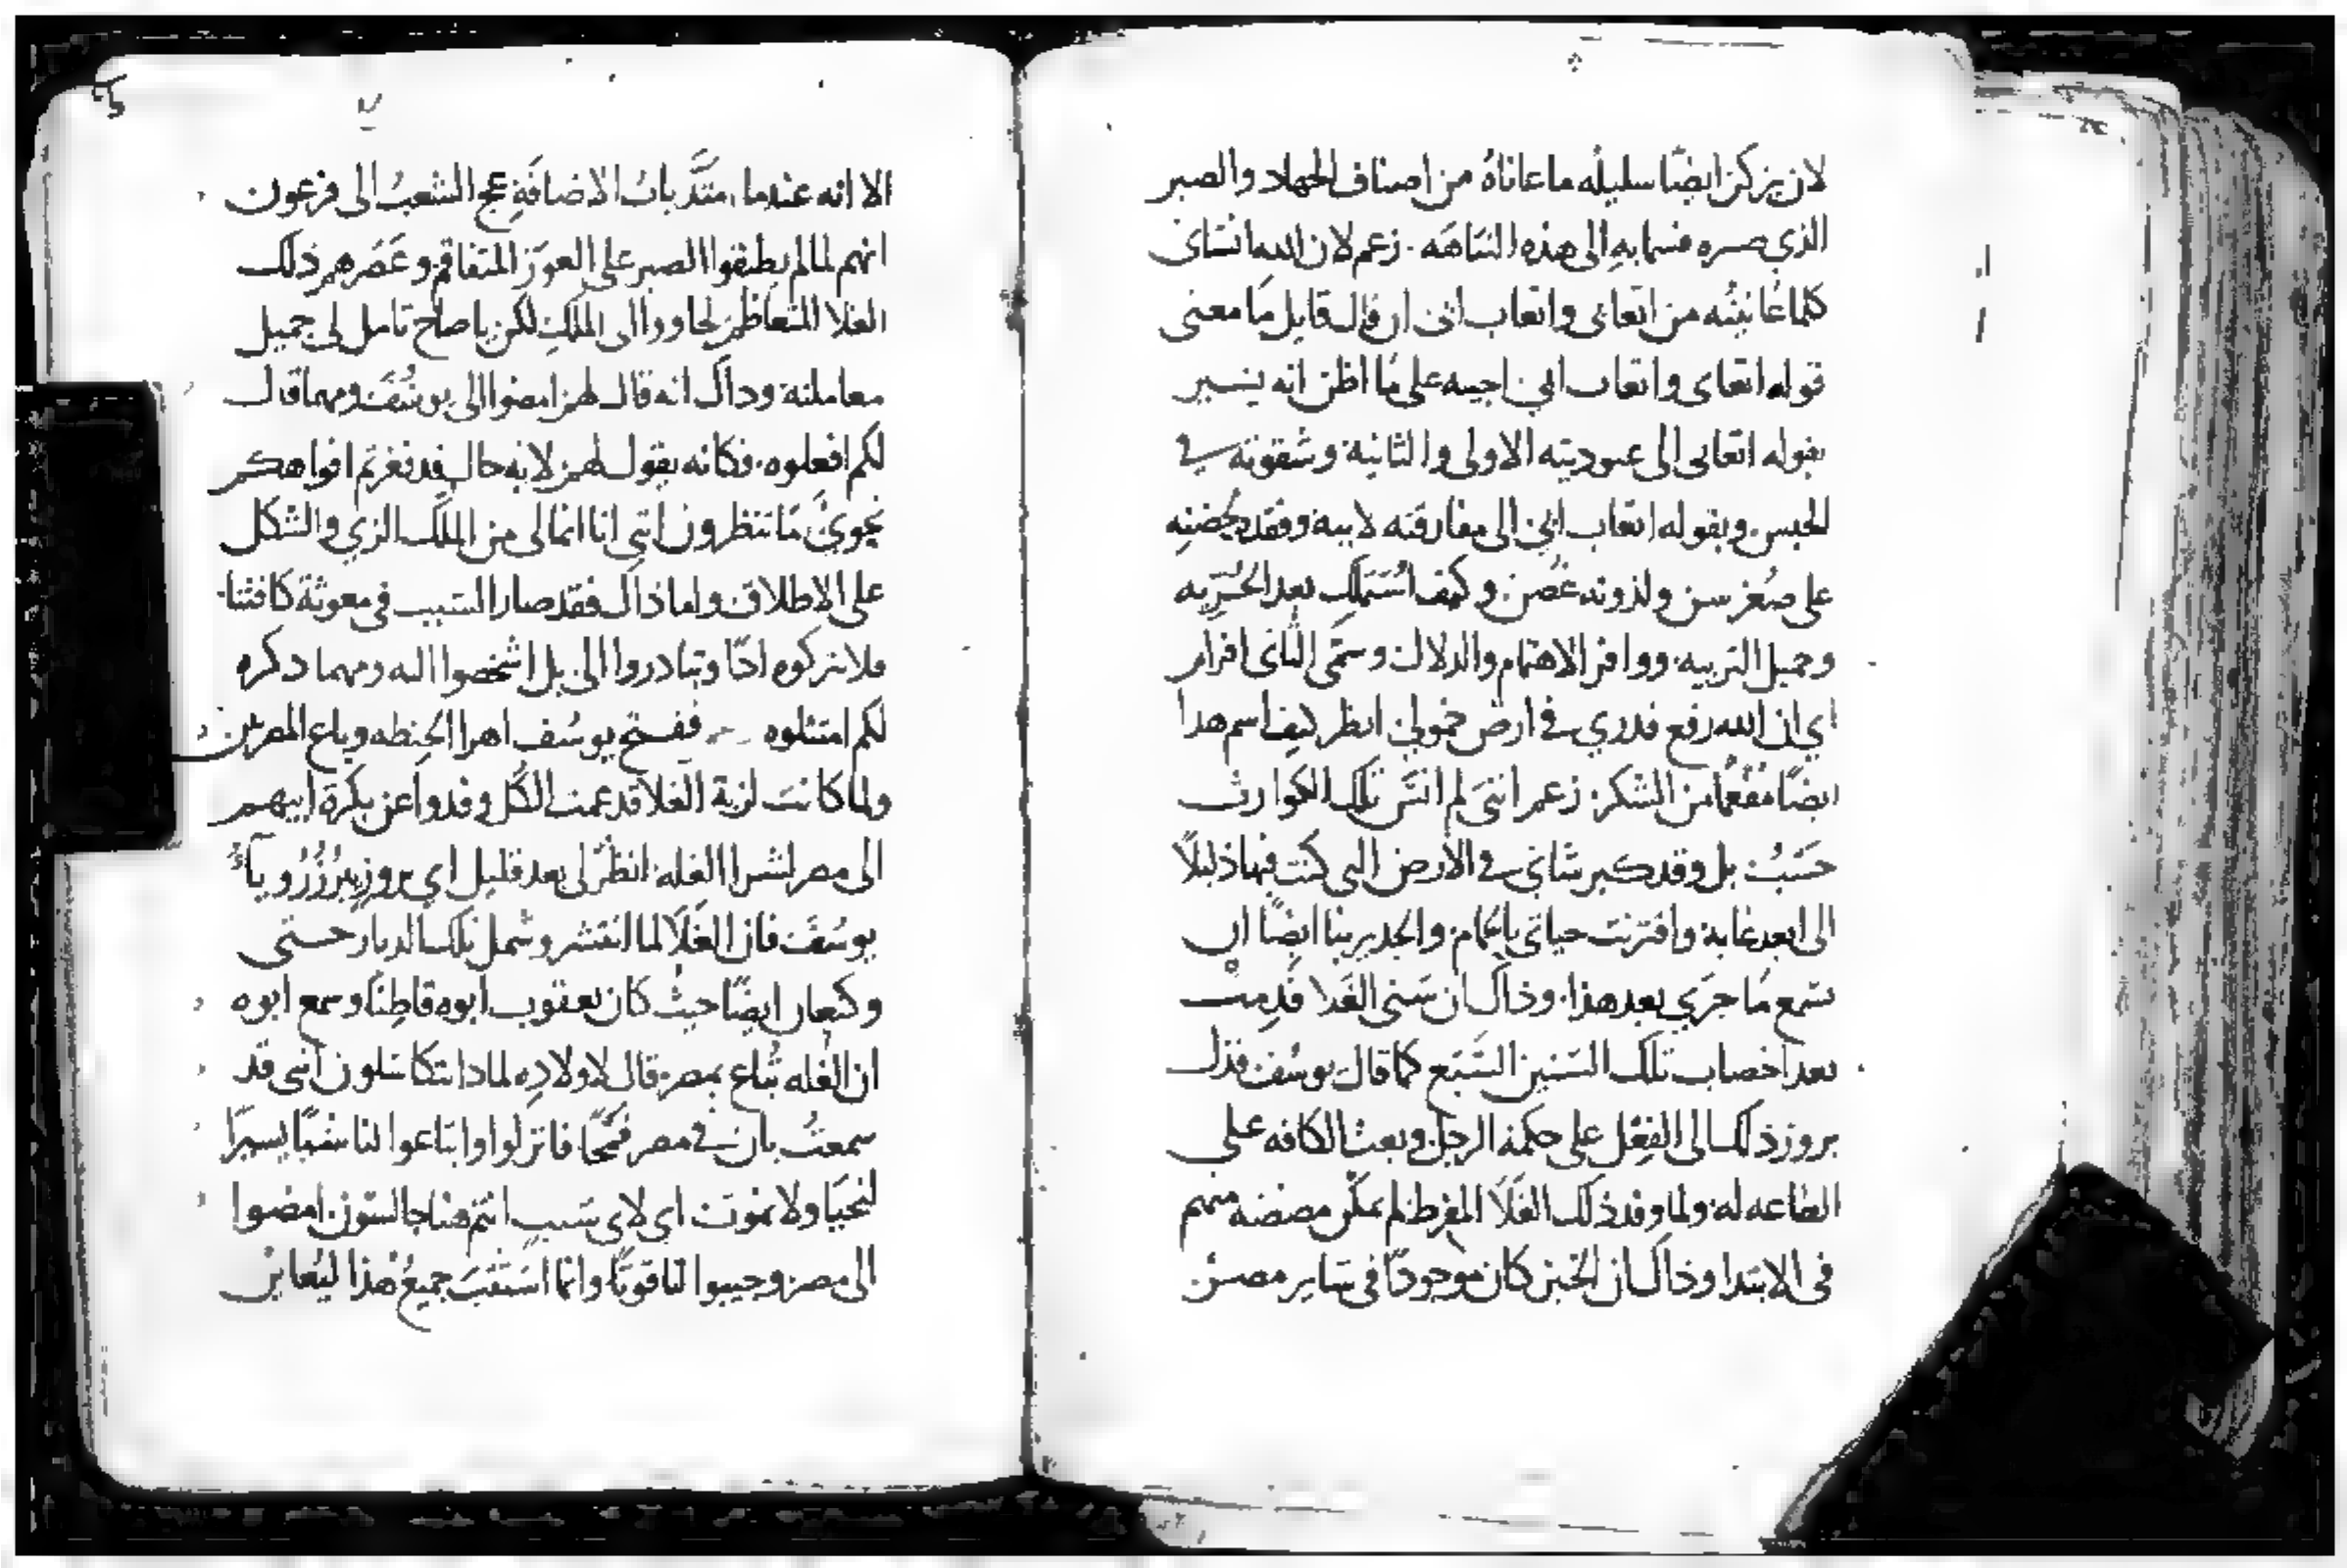 لان يزكن ايضًا سليله ما عاناهُ من اصناف الجهاد والصبر
الذي صبره فسما به الى هذه النباهه. زعم لان الله انساني
كلما عانيتُه من اتعابي واتعاب ابي ان قال قايل مَا معنى
قوله اتعابي واتعاب ابي اجيبه على مَا اظن انه يشير
بقوله اتعابي الى عبوديته الاولى والثانية وشقوته في
الحبس وبقوله اتعاب ابي الى مفارقته لابيه وفقد حضنه
على صُغر سن ولدونه غصن وكيف اسُتملك بعد الحُرّيه
وجميل التربيه ووافر الاهتمام والدلال وسمّى الثاني افرام
اي ان الله رفع قدري في ارض خمولي انظر كيف اسم هدا
ايضًا مُفعمًا من الشكر. زعم انني لم انسَ تلك الكوارث
حَسْبُ بل وقد كبر شاني في الارض التي كنت فيها ذليلًا
الى ابعد غاية واقترنت حياتي باعمام والجدير بنا ايضًا ان
نسمع مَا جرَي بعد هذا. وذاك ان سَني الغَلا قَدِمت
بعد اخصاب تلك السَنين السَبَع كما قال يوسُف فدل
بروز ذلك الى الفِعْل على حكمة الرجل وبعث الكافه على
الطاعه له ولما وفد ذلك الغَلَا المفرط لم تمكّن مضضه منهم
في الابتدا وذاك ان الخبز كان موجودًا في سَاير مصر
الا انه عندما امتدّ بابُ الاضافَةِ عج الشعبُ الى فرعون
انهم لما لم يطيقوا الصبر على العوَز المتفاقم وعَصَرهم ذلك
الغلا المتعاظم لجاووا الى الملكِ لكن ياصاح تامل لي جميل
معاملته وداك انه قال لهم امضوا الى يوسُف ومهما قال
لكم افعلوه. فكانه يقول لهم لايه حال قد فغرتم افواهكم
نحويَّ مَا تنظرون انني انا انما لي من الملك الزي والشكل
على الاطلاق واما ذاك فقد صار السَبب في معوثة كافتنا.
فلا تتركوه ادًا وتبادروا الي بل اشخصوا اليه ومهما دكره
لكم امتثلوه ففتح يوسُف اهرا الحِنطه وباع المصرين
ولما كانت لزبة الغلا قد عمت الكُل وفدوا عن بكرة ابيهم
الى مصر لشرا الغله انظر لي بعد قليل اي بروز يبرُزُ رويآ
يوسُفَ فان الغَلَا لما انتشر وشمل تلك الديار حتى
وكنعان ايضًا حيثُ كان يعقوب ابوه قاطِنًا وسمع ابوه
ان الغُله تُباع بمصر قال لاولادِه لمادا تتكاسَلون انني قد
سمعتُ بان في مصر قمحًا فانزلوا وابتاعوا لنا شيًا يسيرًا
لنحيَا ولا نموتَ اي لاي سَببٍ انتم هنا جالسَون امضوا
الى مصر وجيبوا لنا قوتًا وانما اسَتتبَ جميعُ هذا ليُعاين